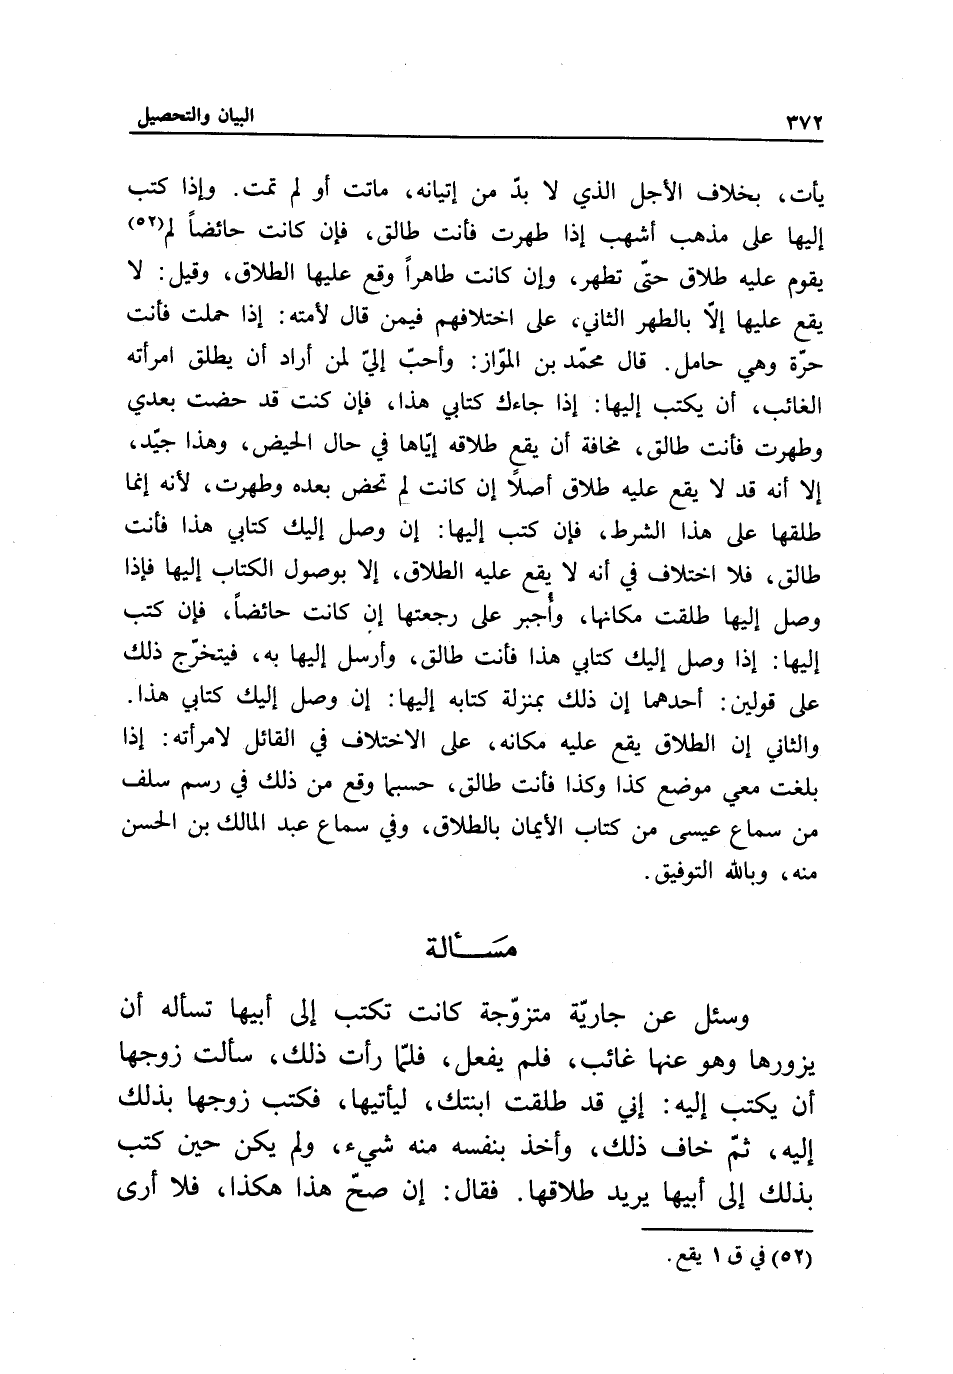 ٣٧٢ البيان والتحصيل
يأت، بخلاف الأجل الذي لا بدّ من إتيانه، ماتت أو لم تمت. وإذا كتب
إليها على مذهب أشهب إذا طهرت فأنت طالق، فإن كانت حائضاً لم(٥٢)
يقوم عليه طلاق حتّى تطهر، وإن كانت طاهراً وقع عليها الطلاق، وقيل: لا
يقع عليها إلّا بالطهر الثاني، على اختلافهم فيمن قال لأمته: إذا حملت فأنت
حرّة وهي حامل. قال محمّد بن الموّاز: وأحبّ إليّ لمن أراد أن يطلق امرأته
الغائب، أن يكتب إليها: إذا جاءك كتابي هذا، فإن كنت قد حضت بعدي
وطهرت فأنت طالق، مخافة أن يقع طلاقه إيّاها في حال الحيض، وهذا جيّد،
إلا أنه قد لا يقع عليه طلاق أصلاً إن كانت لم تحض بعده وطهرت، لأنه إنما
طلقها على هذا الشرط، فإن كتب إليها: إن وصل إليك كتابي هذا فأنت
طالق، فلا اختلاف في أنه لا يقع عليه الطلاق، إلا بوصول الكتاب إليها فإذا
وصل إليها طلقت مكانها، وأُجبر على رجعتها إن كانت حائضاً، فإن كتب
إليها: إذا وصل إليك كتابي هذا فأنت طالق، وأرسل إليها به، فيتخرّج ذلك
على قولين: أحدهما إن ذلك بمنزلة كتابه إليها: إن وصل إليك كتابي هذا.
والثاني إن الطلاق يقع عليه مكانه، على الاختلاف في القائل لامرأته: إذا
بلغت معي موضع كذا وكذا فأنت طالق، حسبما وقع من ذلك في رسم سلف
من سماع عيسى من كتاب الأيمان بالطلاق، وفي سماع عبد المالك بن الحسن
منه، وبالله التوفيق.
مسألة
وسئل عن جاريّة متزوّجة كانت تكتب إلى أبيها تسأله أن
يزورها وهو عنها غائب، فلم يفعل، فلمّا رأت ذلك، سألت زوجها
أن يكتب إليه: إني قد طلقت ابنتك، ليأتيها، فكتب زوجها بذلك
إليه، ثمّ خاف ذلك، وأخذ بنفسه منه شيء، ولم يكن حين كتب
بذلك إلى أبيها يريد طلاقها. فقال: إن صحّ هذا هكذا، فلا أرى
(٥٢) في ق ١ يقع.